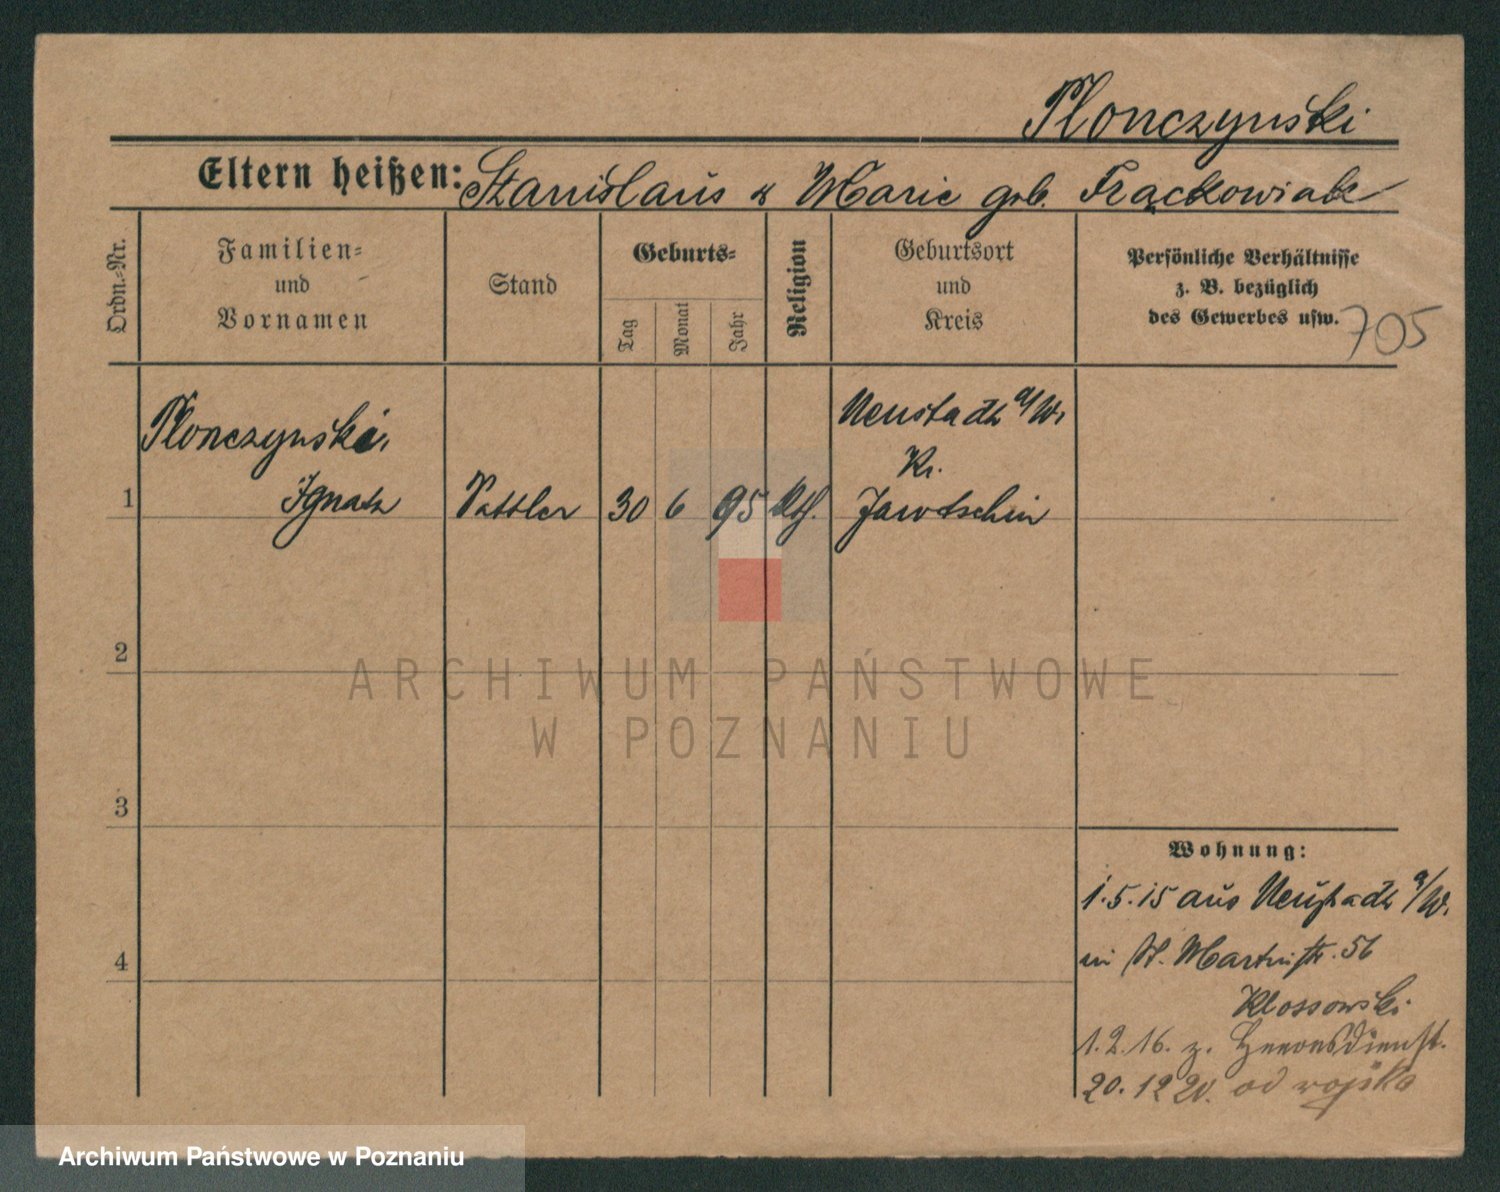 Plonczynski
Eltern heißen: Stanislaus & Marie geb. Frąckowiak
Ordn.-Nr.
Familien- und Vornamen
Stand
Geburts-
Tag
Monat
Jahr
Religion
Geburtsort und Kreis
Persönliche Verhältnisse
z. B. bezüglich
des Gewerbes usw.
705
Plonczynski,
Neustadt a/W.
Kr.
1 Ignatz Sattler 30 6 95 kth. Jarotschin
2
3
4
Wohnung:
1.5.15 aus Neustadt a/W.
in St. Martinstr. 56
Klossowski
1.2.16. z. Heeresdienst.
20.12 20. od wojska
ARCHIWUM PAŃSTWOWE
W POZNANIU
Archiwum Państwowe w Poznaniu